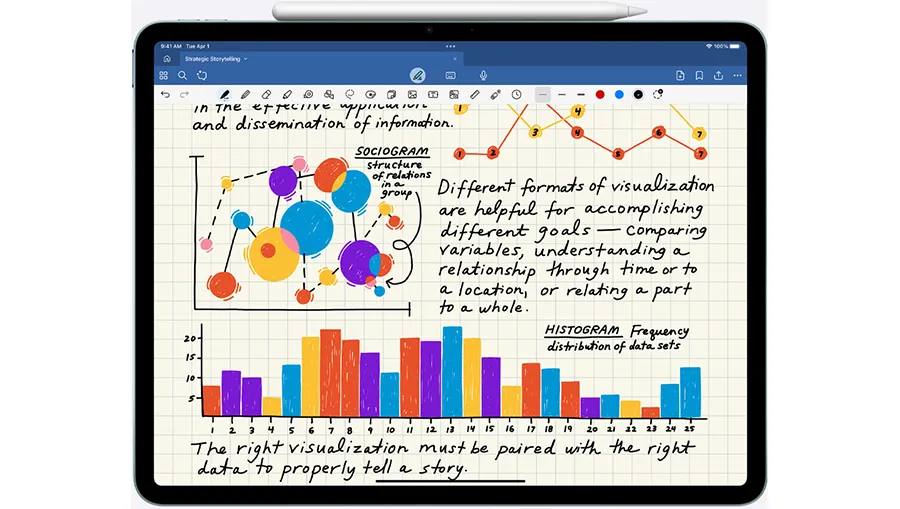 9:41 AM Tue Apr 1
100%
Strategic Storytelling
in the effective application
and dissemination of information.
1
3
4
7
1 2 4 5 6 7
SOCIOGRAM
structure
of relations
in a
group
Different formats of visualization
are helpful for accomplishing
different goals — comparing
variables, understanding a
relationship through time or to
a location, or relating a part
to a whole.
HISTOGRAM Frequency
distribution of data sets
20
15
10
5
1 2 3 4 5 6 7 8 9 10 11 12 13 14 15 16 17 18 19 20 21 22 23 24 25
The right visualization must be paired with the right
data to properly tell a story.